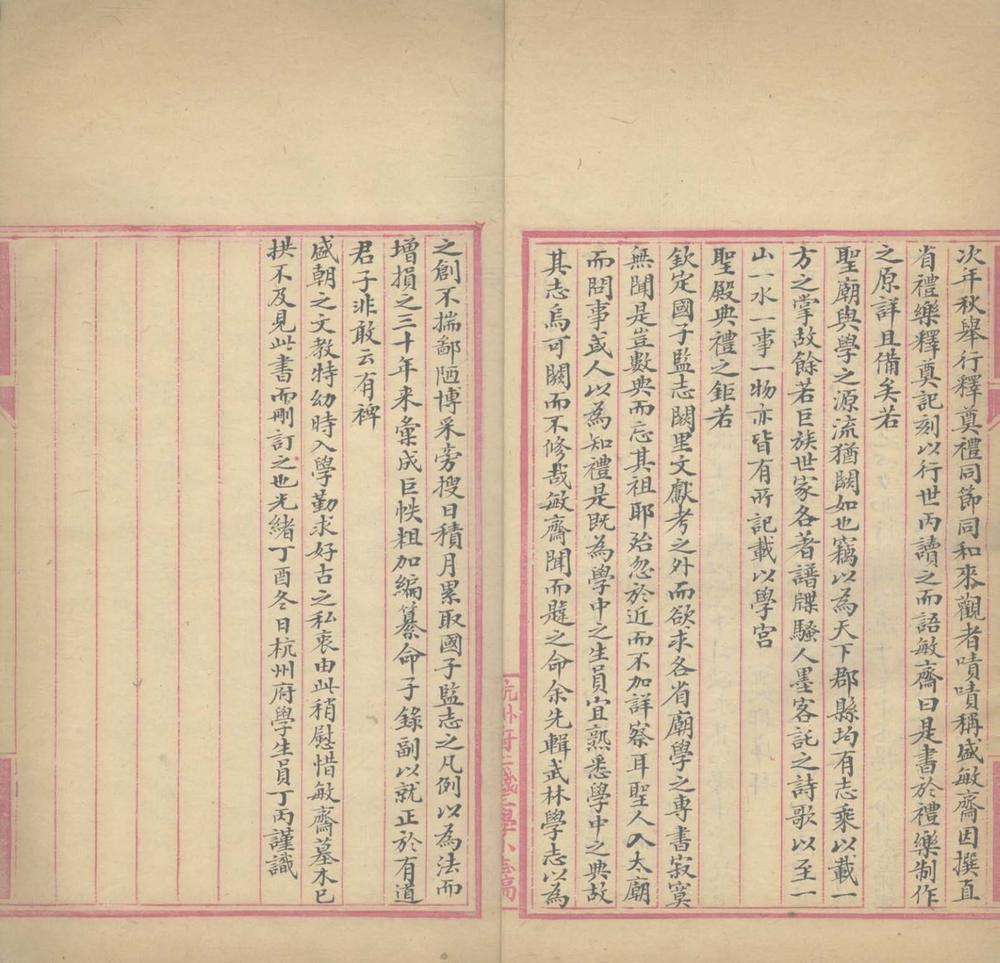 次年秋舉行釋奠禮同節同和來觀者嘖嘖稱盛敏齋因撰直
省禮樂釋奠記刻以行世丙讀之而語敏齋曰是書於禮樂制作
之原詳且備矣若
聖廟與學之源流猶闕如也竊以為天下郡縣均有志乘以載一
方之掌故餘若巨族世家各著譜牒騷人墨客託之詩歌以至一
山一水一事一物亦皆有所記載以學宮
聖殿典禮之鉅若
欽定國子監志闕里文獻考之外而欲求各省廟學之專書寂寞
無聞是豈數典而忘其祖耶殆忽於近而不加詳察耳聖人入太廟
而問事或人以為知禮是既為學中之生員宜熟悉學中之典故
其志烏可闕而不修哉敏齋聞而韙之命余先輯武林學志以為
之創不揣鄙陋博采旁搜日積月累取國子監志之凡例以為法而
增損之三十年來彙成巨帙粗加編纂命子錄副以就正於有道
君子非敢云有裨
盛朝之文教特幼時入學勤求好古之私衷由此稍慰惜敏齋墓木已
拱不及見此書而刪訂之也光緒丁酉冬日杭州府學生員丁丙謹識